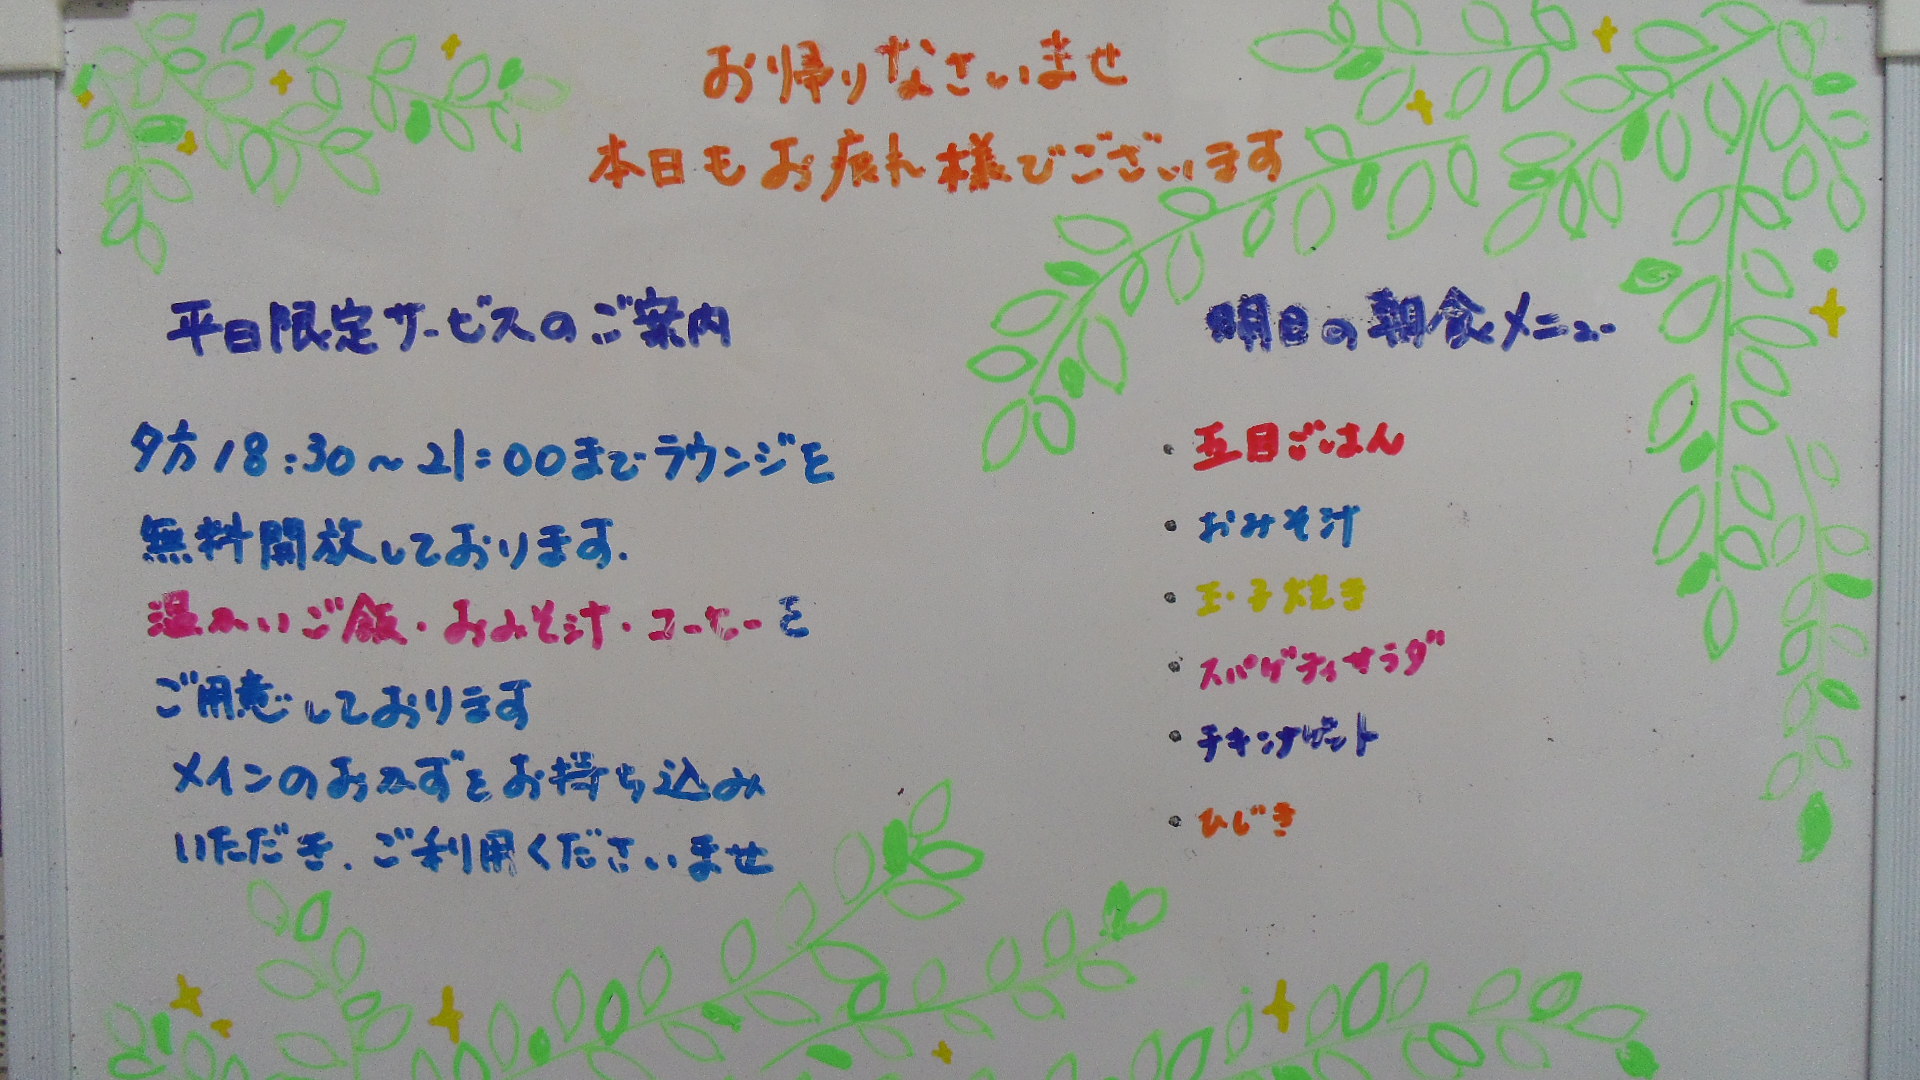 お帰りなさいませ
本日もお疲れ様でございます
平日限定サービスのご案内
夕方18:30~21:00までラウンジを
無料開放しております。
温かいご飯・おみそ汁・コーヒーを
ご用意しております
メインのおかずをお持ち込み
いただき、ご利用くださいませ
明日の朝食メニュー
・五目ごはん
・おみそ汁
・玉子焼き
・スパゲティサラダ
・チキンナゲット
・ひじき